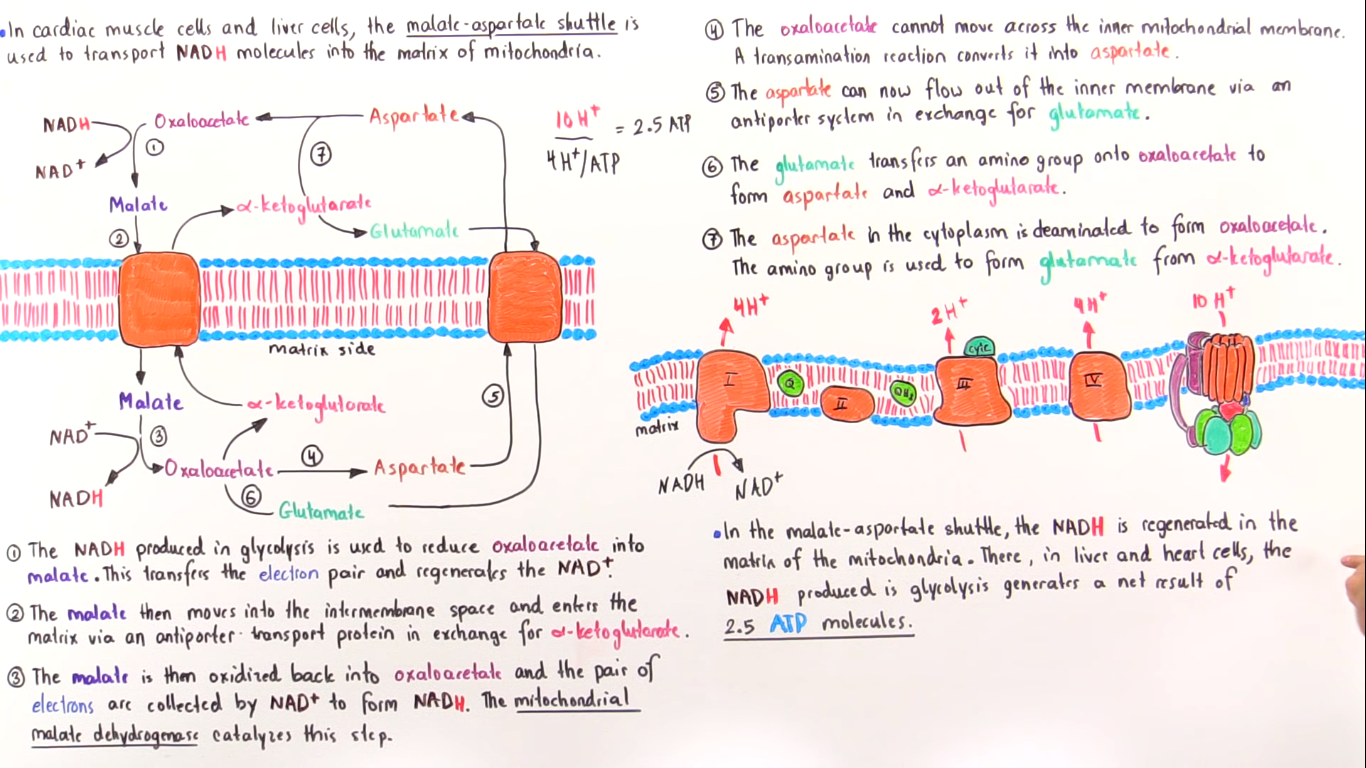 •In cardiac muscle cells and liver cells, the malate-aspartate shuttle is
used to transport NADH molecules into the matrix of mitochondria.
NADH
NAD+
Oxaloacetate
Aspartate
①
⑦
10H+
4H+/ATP
= 2.5 ATP
Malate
α-ketoglutarate
②
Glutamate
matrix side
Malate
α-ketoglutarate
⑤
NAD+
③
NADH
Oxaloacetate
④
Aspartate
⑥
Glutamate
① The NADH produced in glycolysis is used to reduce oxaloacetate into
malate. This transfers the electron pair and regenerates the NAD+.
② The malate then moves into the intermembrane space and enters the
matrix via an antiporter transport protein in exchange for α-ketoglutarate.
③ The malate is then oxidized back into oxaloacetate and the pair of
electrons are collected by NAD+ to form NADH. The mitochondrial
malate dehydrogenase catalyzes this step.
④ The oxaloacetate cannot move across the inner mitochondrial membrane.
A transamination reaction converts it into aspartate.
⑤ The aspartate can now flow out of the inner membrane via an
antiporter system in exchange for glutamate.
⑥ The glutamate transfers an amino group onto oxaloacetate to
form aspartate and α-ketoglutarate.
⑦ The aspartate in the cytoplasm is deaminated to form oxaloacetate.
The amino group is used to form glutamate from α-ketoglutarate.
4H+
2H+
4H+
10 H+
cytc
I
Q
II
QH2
III
IV
matrix
NADH
NAD+
•In the malate-aspartate shuttle, the NADH is regenerated in the
matrix of the mitochondria. There, in liver and heart cells, the
NADH produced is glycolysis generates a net result of
2.5 ATP molecules.